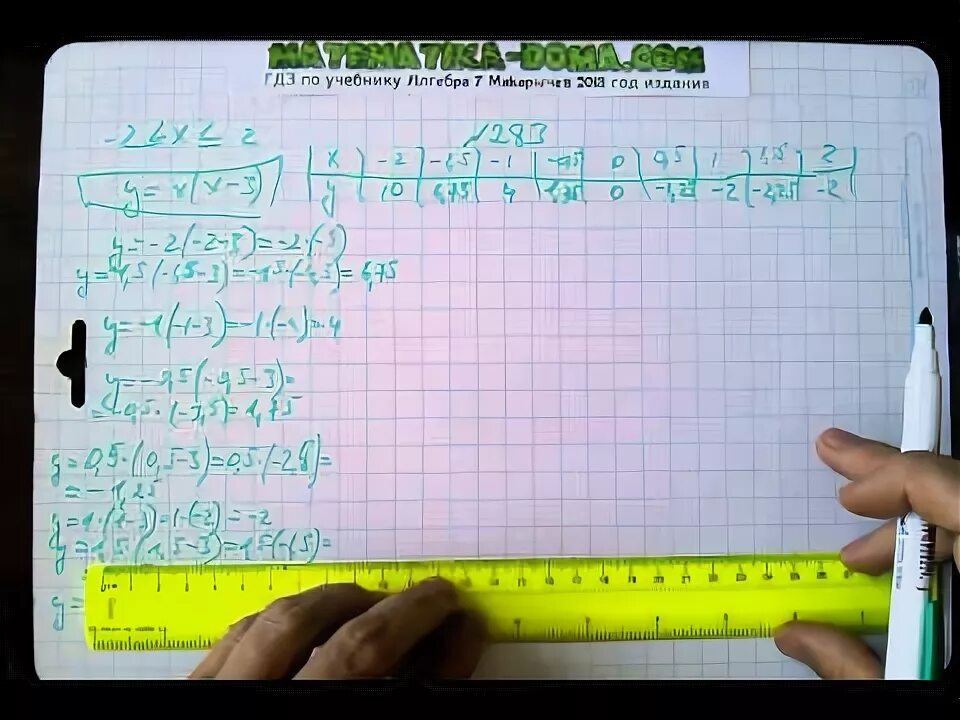 MATEMATIKA-DOMA.COM
ГДЗ по учебнику Алгебра 7 Макарычев 2013 год издания
1283
-2 ≤ x ≤ 2
y = x(x-3)
x -2 -1,5 -1 0 0,5 1 1,5 2
y 10 6,75 4 0 -1,25 -2 -2,25 -2
y = -2(-2-3) = -2·(-5)
y = -1,5(-1,5-3) = 6,75
y = -1(-1-3) = -1·(-4) = 4
y = -0,5(-0,5-3) =
= -0,5·(-3,5) = 1,75
y = 0,5·(0,5-3) = 0,5·(-2,5) =
= -1,25
y = 1·(1-3) = 1·(-2) = -2
y = 1,5(1,5-3) = 1,5(-1,5) =
y =